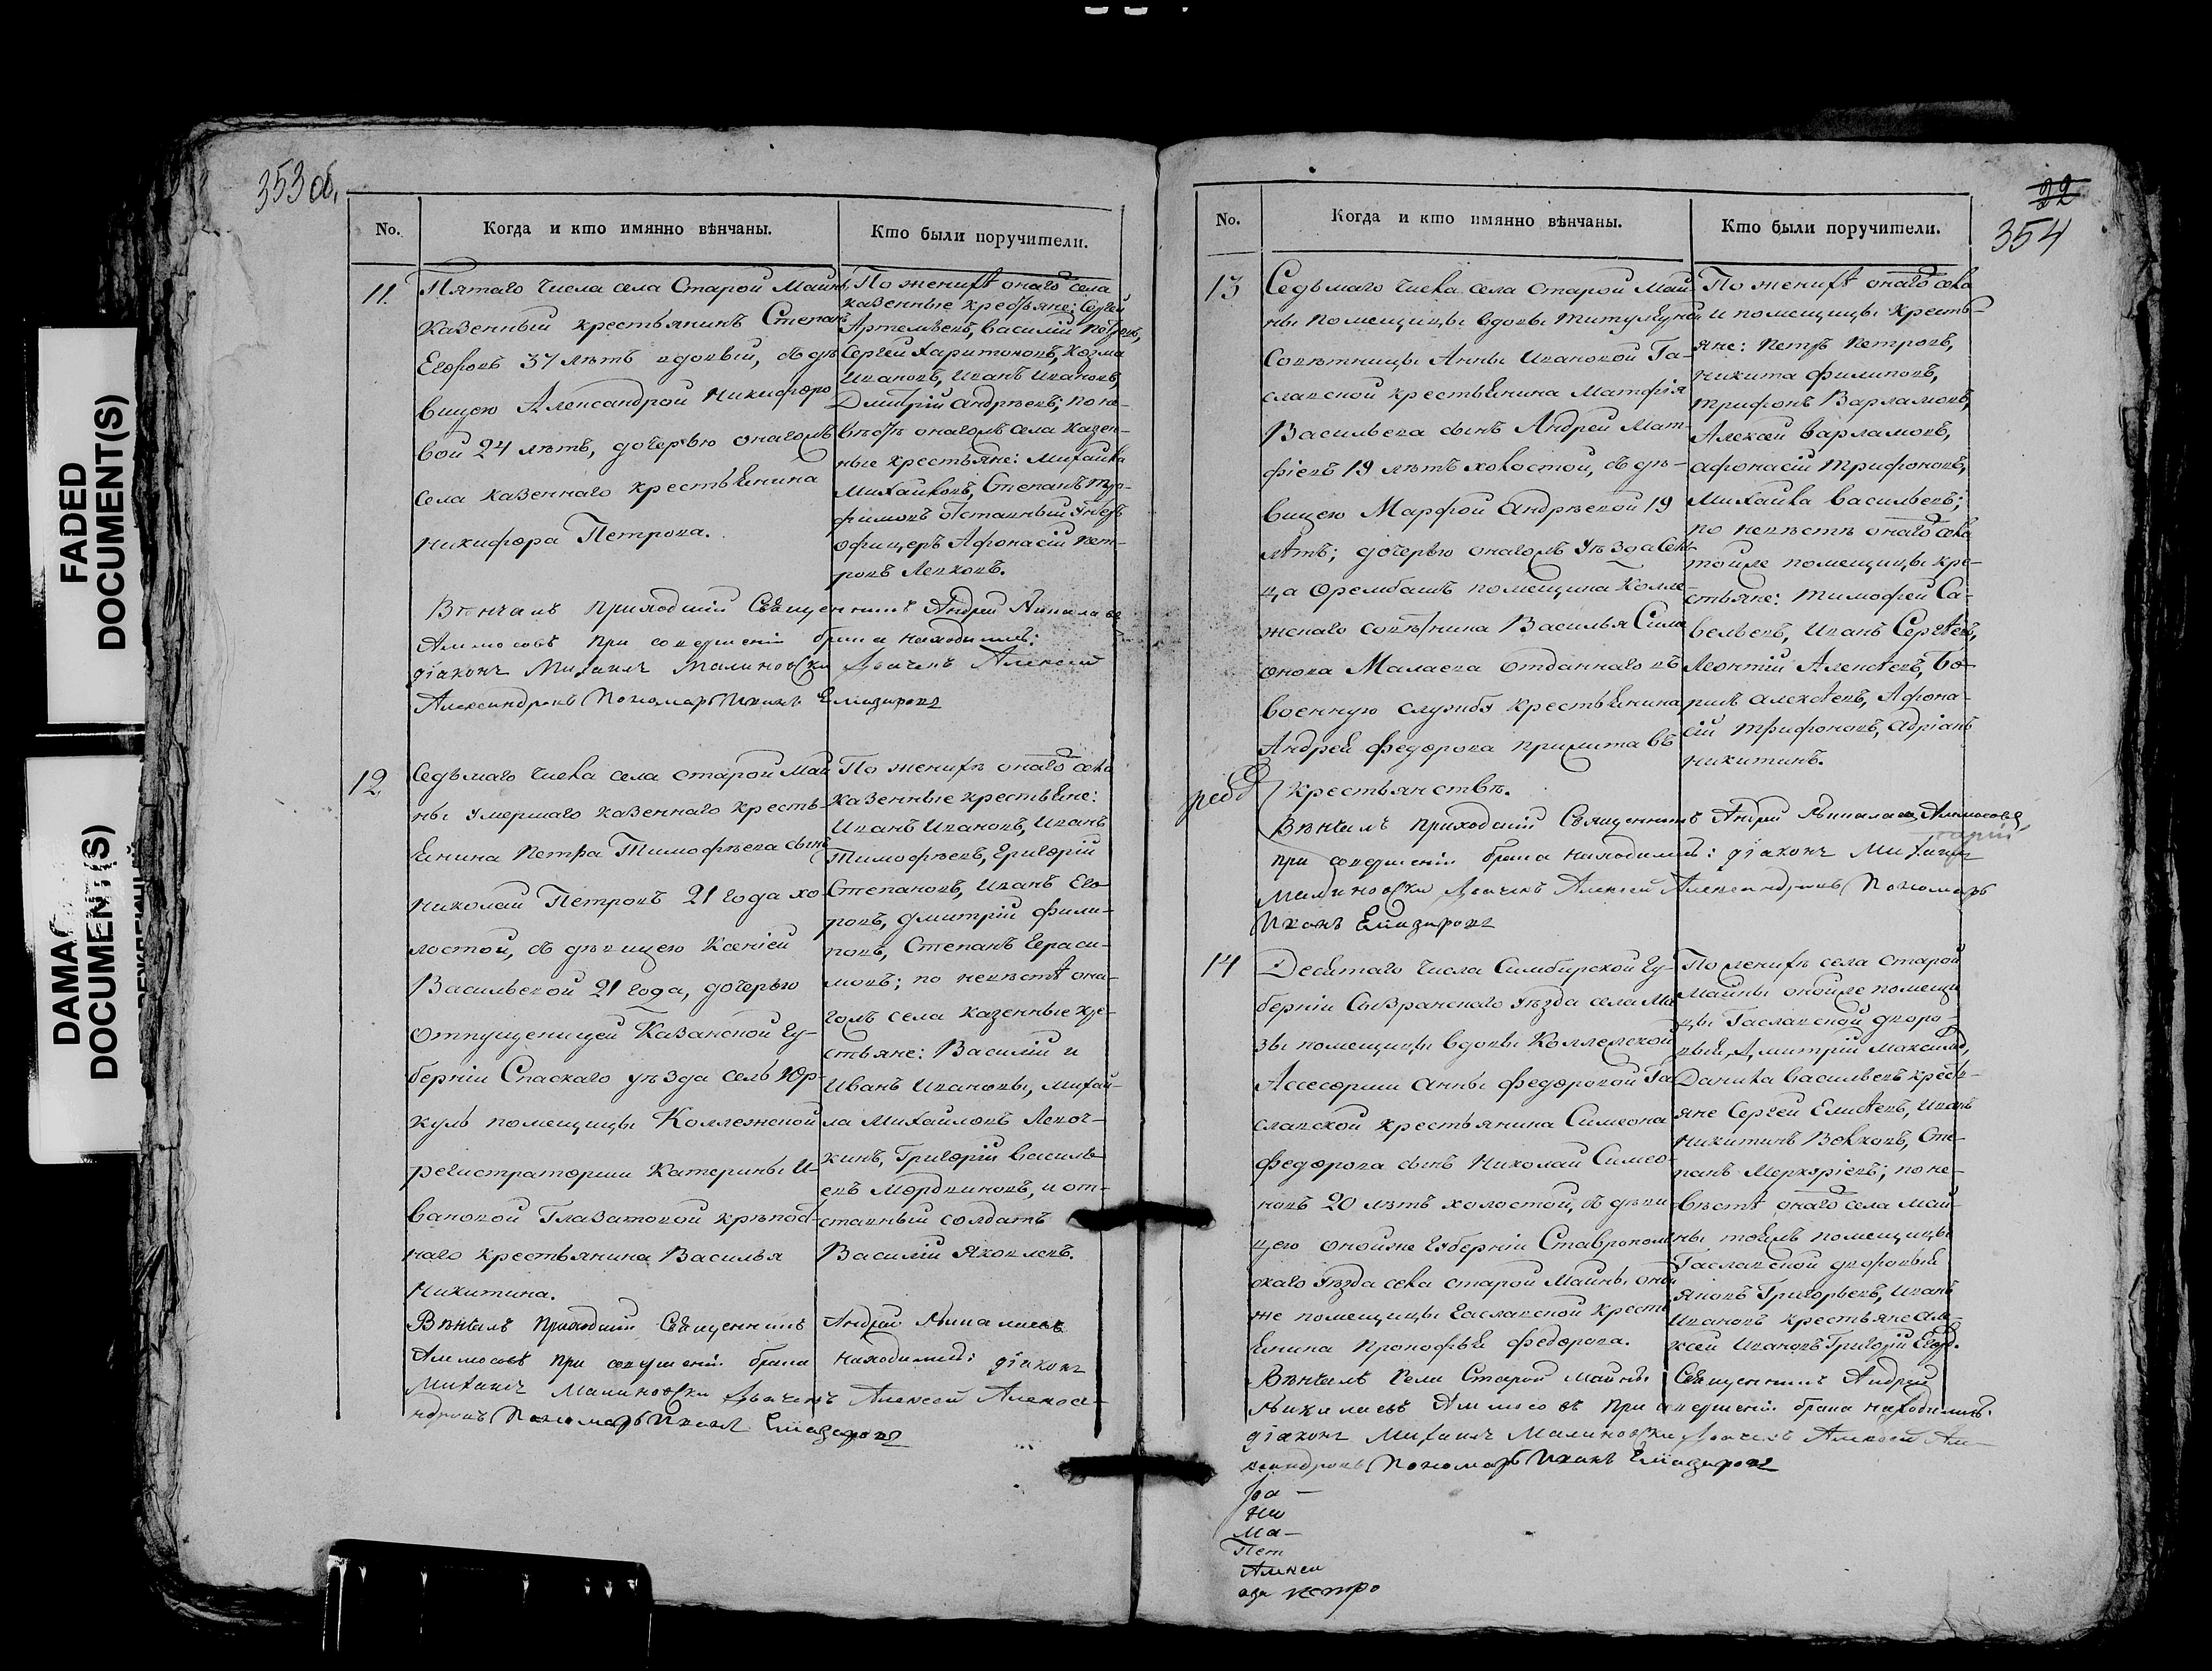 353 об.
No.
Когда и кто имянно вѣнчаны.
Кто были поручители.
11.
Пятаго числа села Старой Майны
казенный крестьянинъ Степанъ
Егоровъ 37 лѣтъ вдовый, съ дѣ
вицею Александрой Никифоро
вой 24 лѣтъ, дочерью онагожъ
села казеннаго крестьянина
Никифора Петрова.
По женихѣ онаго села
казенные крестьяне: Сергей
Артемьевъ, Василій Петровъ,
Сергей Харитоновъ, Козма
Ивановъ, Иванъ Ивановъ,
Дмитрій Андрѣевъ; по не-
вѣстѣ онагожъ села казен-
ные крестьяне: Михайла
Михайловъ, Степанъ
отставный Унтеръ
офицеръ Афонасій Пет-
ровъ
Вѣнчалъ приходскій Священникъ Андрей Николаевъ
Аммосовъ при совершеніи брака находились:
діаконъ Михаилъ Малиновски Дьячекъ Алексей
Александровъ Пономарь Иванъ
12.
Седьмаго числа села старой Май
ны умершаго казеннаго кресть-
янина Петра Тимофѣева сынъ
Николай Петровъ 21 года хо
лостой, съ дѣвицею Ксеніей
Васильевой 21 года, дочерью
отпущеницей Казанской Гу-
берніи Спаскаго уѣзда селъ Юр-
куль помещицы Коллежской
регистраторши Катерины И-
вановой Глазатовой крѣпос-
наго крестьянина Василья
Никитина.
По женихѣ онаго села
казенные крестьяне:
Иванъ Ивановъ, Иванъ
Тимофѣевъ, Григорій
Степановъ, Иванъ Его-
ровъ, Дмитрій Фили-
повъ, Степанъ Гераси-
мовъ; по невѣстѣ она-
гожъ села казенные кре-
стьяне: Василій и
Иванъ Ивановы, Михай-
ла Михайловъ Левоч-
кинъ, Григорій Василь-
евъ Мордвиновъ, и от-
ставный солдатъ
Василій Яковлевъ.
Вѣнчалъ Приходскій Священникъ Андрей Николаевъ
Аммосовъ при совершеніи брака находились: діаконъ
Михаилъ Малиновски Дьячекъ Алексей Алекса-
ндровъ Пономарь Иванъ
22
354
No.
Когда и кто имянно вѣнчаны.
Кто были поручители.
13
Седьмаго числа села старой Май-
ны помещицы вдовы титулярной
Совѣтницы Анны Ивановой Га-
славской крестьянина Матфія
Васильева сынъ Андрей Мат-
фіевъ 19 лѣтъ холостой, съ дѣ-
вицею Марфой Андрѣевой 19
лѣтъ; дочерью онагожъ уѣзда Сель-
ца помещика Колле-
жскаго совѣтника Василья Сим
онова Малаева отданнаго въ
военную службу крестьянина
Андрей Федорова
крестьянствѣ.
По женихѣ онаго села
и помещицы кресть-
яне: Петръ Петровъ,
Никита Филиповъ,
Трифонъ Варламовъ,
Алексей Варламовъ,
Афонасій Трифоновъ,
Михайла Васильевъ;
по невѣстѣ онаго села
тойже помещицы кре-
стьяне: Тимофей Са-
вельевъ, Иванъ Сергѣевъ,
Леонтій Алексѣевъ, Бо-
рисъ Алексѣевъ, Афона-
сій Трифоновъ, Адріанъ
Никитинъ.
Вѣнчалъ приходскій Священникъ Андрей Николаевъ Аммосовъ
при совершеніи брака находились: діаконъ Михаилъ
Малиновски Дьячекъ Алексей Александровъ Пономарь
Иванъ
14
Десятаго числа Симбирской Гу-
берніи Сызранскаго уѣзда села Ма
зы помещицы вдовы Коллежской
Ассесорши Анны Федоровой Га
славской крестьянина Симеона
Федорова сынъ Николай Симео
новъ 20 лѣтъ холостой, съ дѣви
цею оной же Губерніи Ставрополь
скаго уѣзда села старой Майны оной
же помещицы Гаславской кресть
янина Прокофья Федорова.
По женихѣ села старой
Майны онойже помещи
цы Гаславской дворо-
вый, Дмитрій Максимов,
Данила Васильевъ кресть-
яне Сергей Елисѣевъ, Иванъ
Никитинъ Волковъ, Сте-
панъ Меркуріевъ; по не-
вѣстѣ онаго села май-
ны тойжъ помещицы
Гаславской дворовый
Яковъ Григорьевъ, Иванъ
Ивановъ крестьяне Але-
ксей Ивановъ Григорій Егор.
Вѣнчалъ Села Старой Майны Священникъ Андрей
Николаевъ Аммосовъ при совершеніи брака находились:
діаконъ Михаилъ Малиновски Дьячекъ Алексей Але-
ксандровъ Пономарь Иванъ
Ма-
Пет
Алексе
FADED
DOCUMENT(S)
DOCUMENT(S)